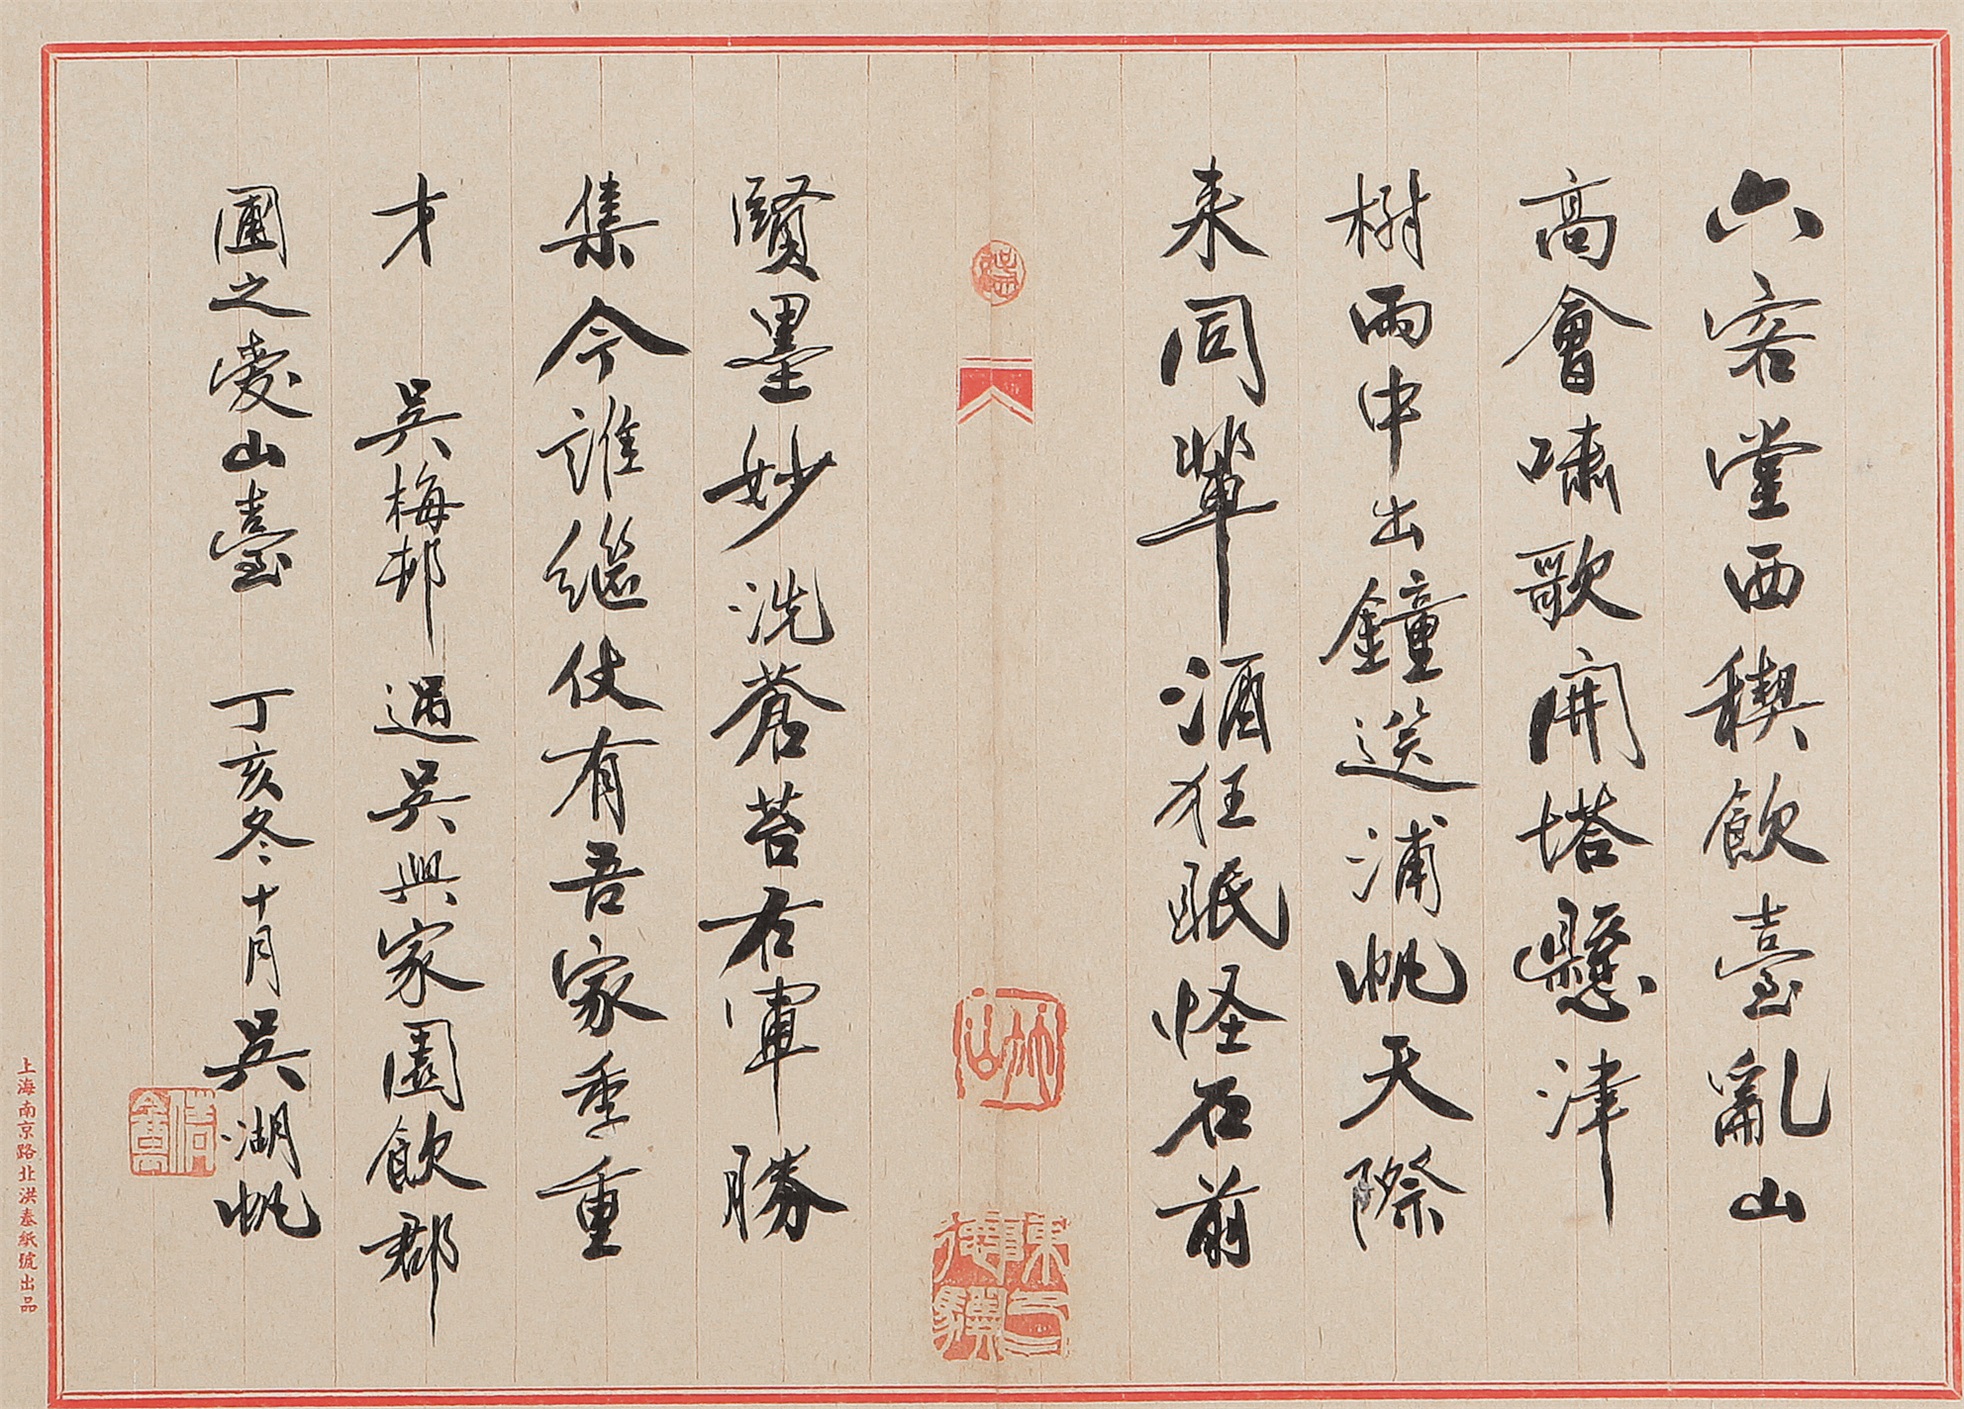 六客堂西稧飲臺亂山
高會嘯歌開塔懸津
樹雨中出鐘送浦帆天際
来同輩酒狂眠怪石前
賢墨妙洗蒼苔右軍勝
集今誰繼仗有吾家季重
才 吳梅邨過吳興家園飲郡
圃之愛山臺 丁亥冬十月吳湖帆
上海南京路北洪泰紙號出品